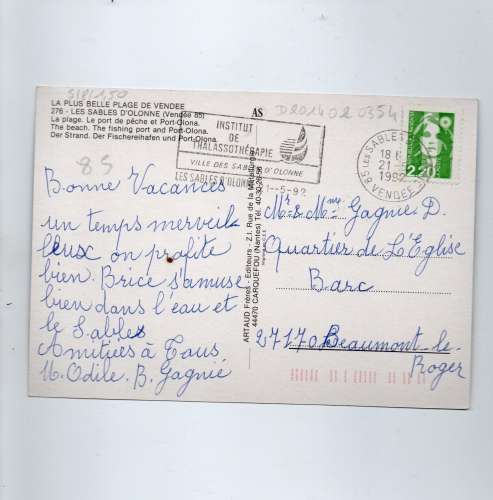 S1P1150
LA PLUS BELLE PLAGE DE VENDEE
276 - LES SABLES D'OLONNE (Vendée 85)
La plage. Le port de pêche et Port-Olona.
The beach. The fishing port and Port-Olona.
Der Strand. Der Fischereihafen und Port-Olona.
85
Bonne Vacances
un temps merveil-
leux on profite
bien. Brice s'amuse
bien dans l'eau et
le Sables
Amitiées à Tous
M. Odile. B. Gagnié
AS
D2014020354
INSTITUT
DE
THALASSOTHÉRAPIE
VILLE DES SABLES D'OLONNE
LES SABLES D'OLONNE
1-5-92
85 LES SABLES
18 H
21
1992
VENDEE
2,20
ARTAUD Frères - Editeurs - Z.I. Rue de la Métallurgie
44470 CARQUEFOU (Nantes) Tél. 40-30-26-56
Mr & Mme Gagnie D.
Quartier de L'Eglise
Barc
27170 Beaumont-le-
Roger